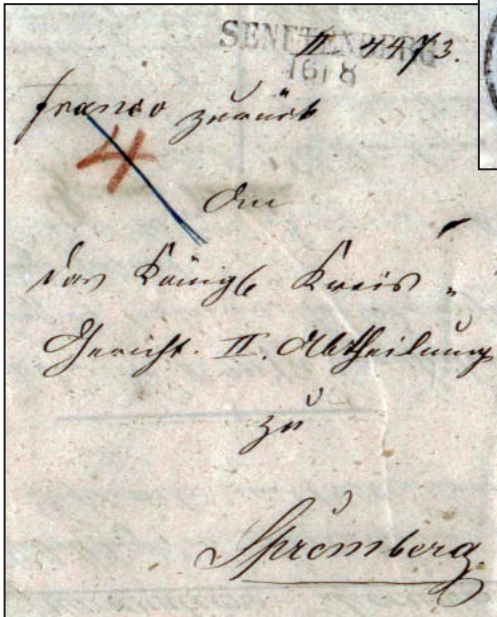 SENFTENBERG
II 4473.
16 | 8
franco zurück
4
An
das Königl. Kreis-
Gericht. II. Abtheilung
zu
Spremberg